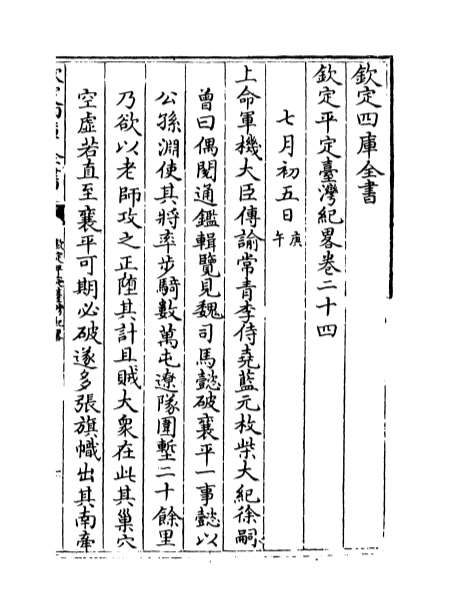 欽定四庫全書
欽定平定臺灣紀畧卷二十四
七月初五日庚午
上命軍機大臣傳諭常青李侍堯藍元枚柴大紀徐嗣
曾曰偶閱通鑑輯覽見魏司馬懿破襄平一事懿以
公孫淵使其將率步騎數萬屯遼隊圍塹二十餘里
乃欲以老師攻之正墮其計且賊大衆在此其巢穴
空虛若直至襄平可期必破遂多張旗幟出其南牽
欽定四庫全書
欽定平定臺灣紀畧